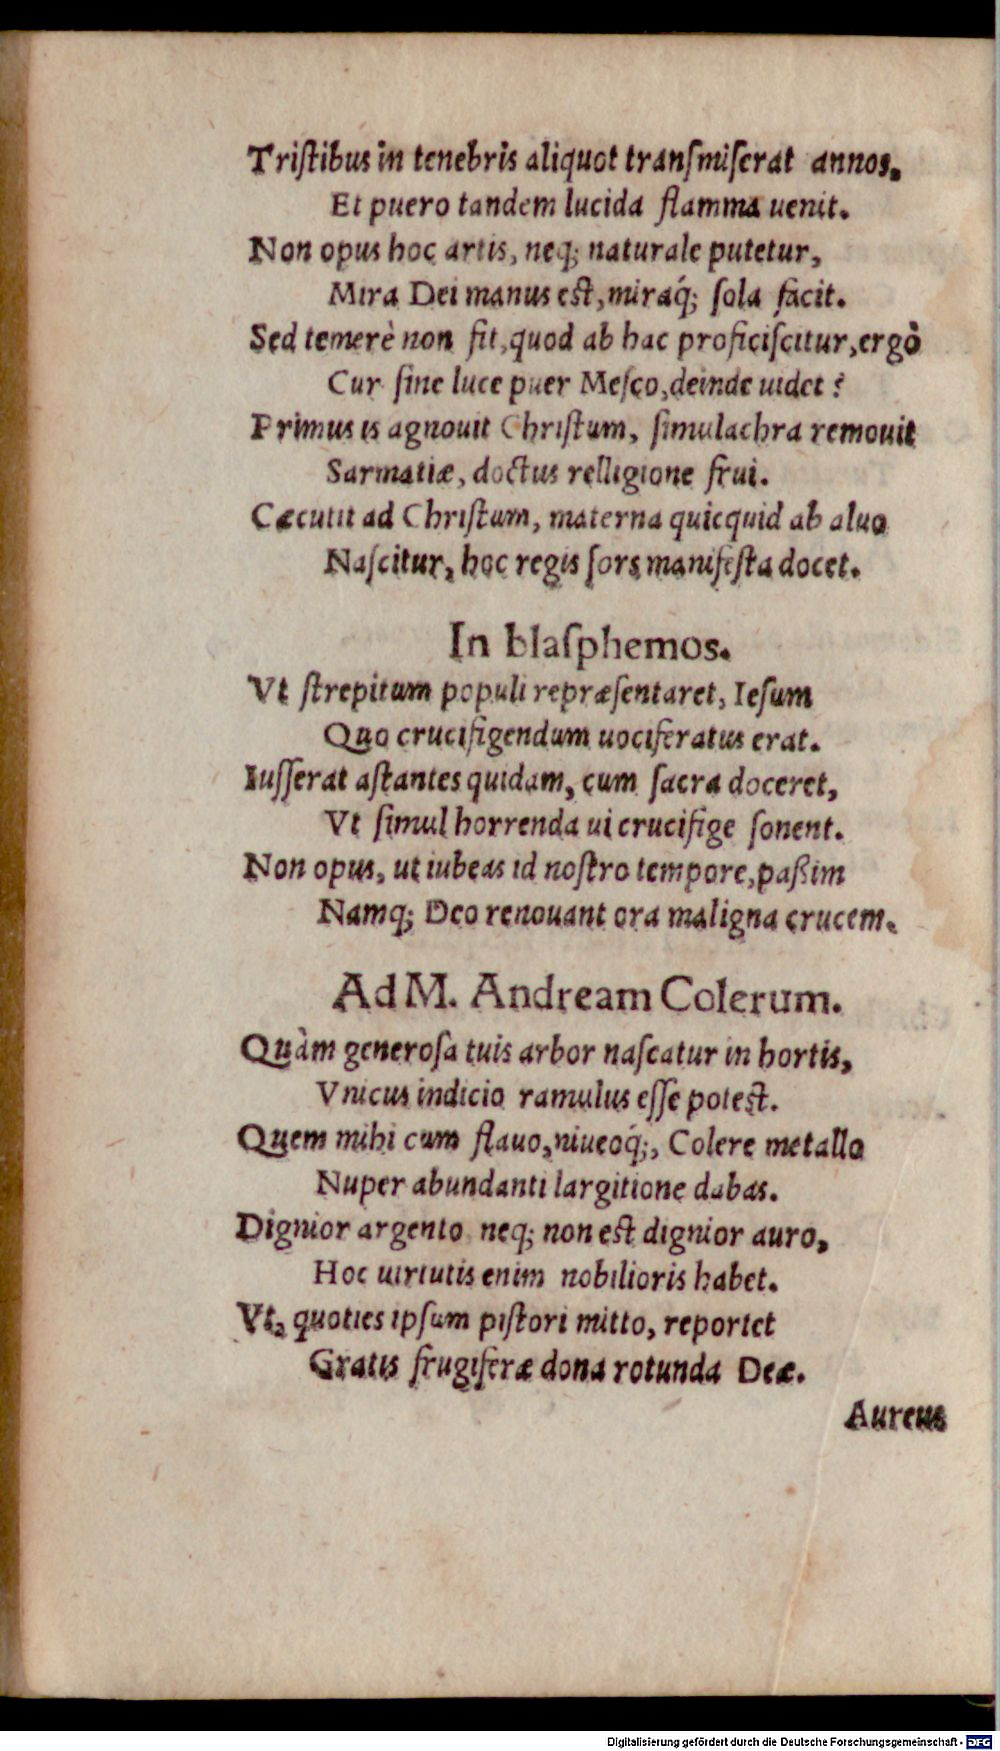 Triſtibus in tenebris aliquot tranſmiſerat annos.
Et puero tandem lucida flamma uenit.
Non opus hoc artis, neq; naturale putetur,
Mira Dei manus est, miraq́; ſola facit.
Sed temerè non fit, quod ab hac proficiſcitur, ergò
Cur ſine luce puer Meſco, deinde uidet?
Primus is agnouit Chriſtum, ſimulachra remouit
Sarmatiæ, doctus relligione frui.
Cæcutit ad Chriſtum, materna quicquid ab aluo
Naſcitur, hoc regis ſors manifeſta docet.
In blaſphemos.
Vt ſtrepitum populi repræſentaret, Ieſum
Quo crucifigendum uociferatus erat.
Iuſſerat aſtantes quidam, cum ſacra doceret,
Vt ſimul horrenda ui crucifige ſonent.
Non opus, ut iubeas id noſtro tempore, paßim
Namq; Deo renouant ora maligna crucem.
Ad M. Andream Colerum.
Quàm generoſa tuis arbor naſcatur in hortis,
Vnicus indicio ramulus eſſe potest.
Quem mihi cum flauo, niueoq́;, Colere metallo
Nuper abundanti largitione dabas.
Dignior argento neq; non est dignior auro,
Hoc uirtutis enim nobilioris habet.
Vt, quoties ipſum piſtori mitto, reportet
Gratis frugiferæ dona rotunda Deæ.
Aureus
Digitalisierung gefördert durch die Deutsche Forschungsgemeinschaft - DFG